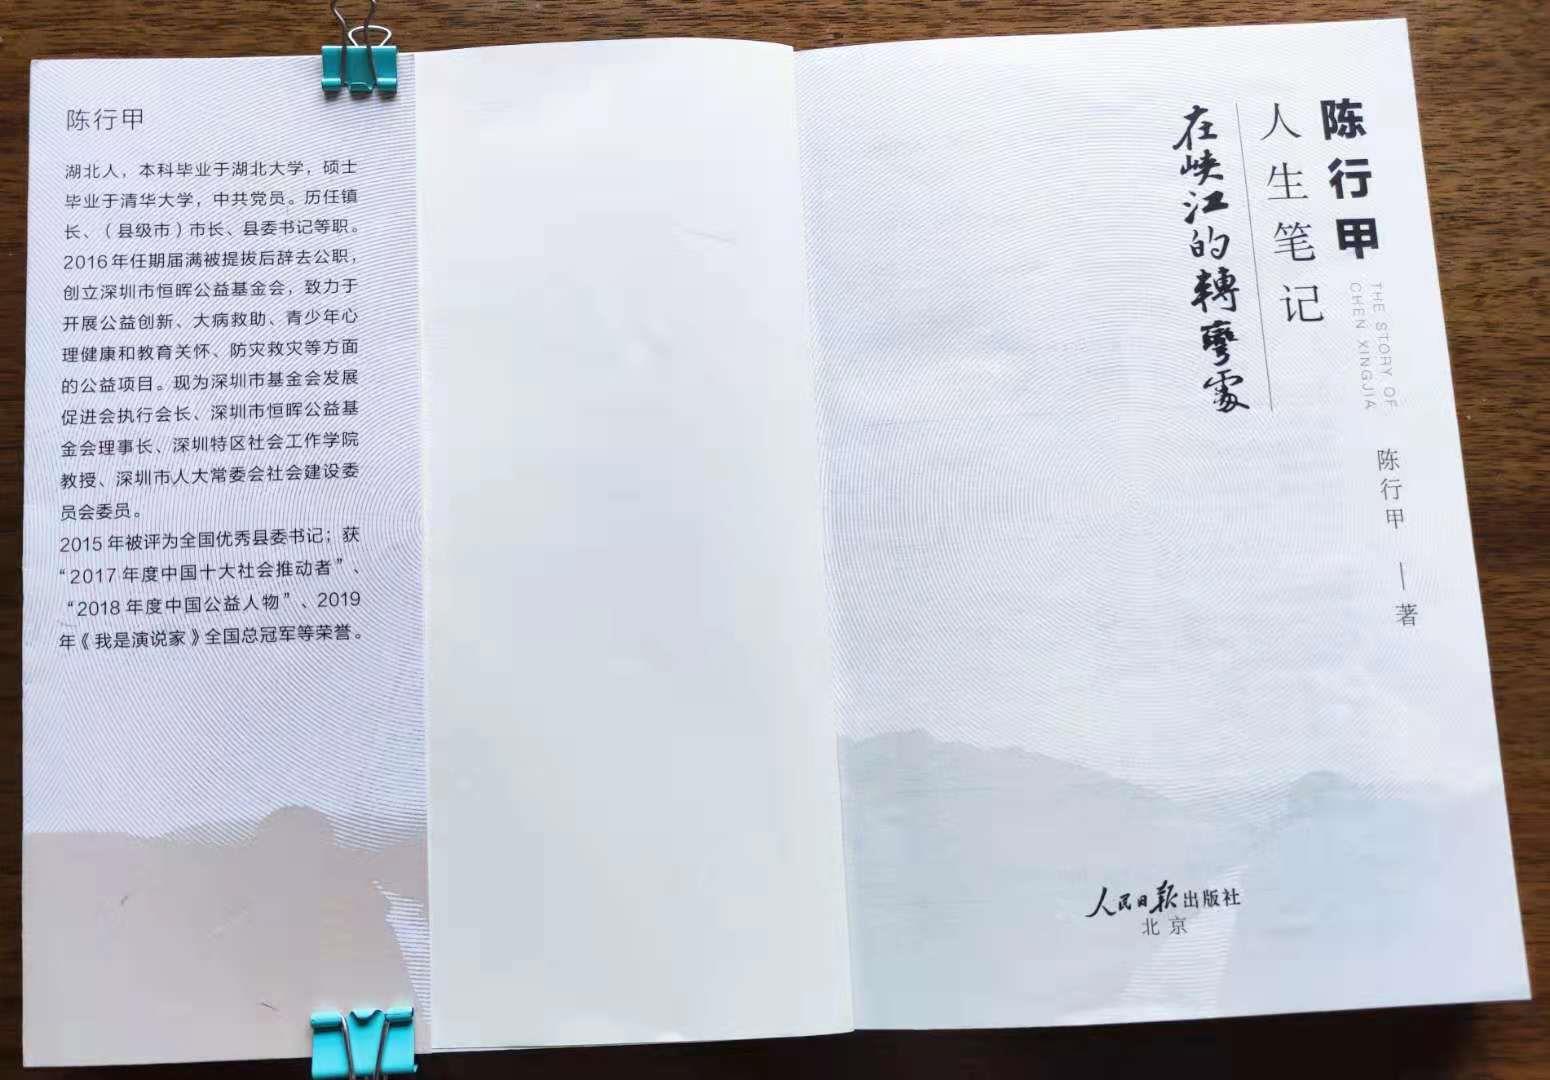 陈行甲
湖北人，本科毕业于湖北大学，硕士
毕业于清华大学，中共党员。历任镇
长、（县级市）市长、县委书记等职。
2016年任期届满被提拔后辞去公职，
创立深圳市恒晖公益基金会，致力于
开展公益创新、大病救助、青少年心
理健康和教育关怀、防灾救灾等方面
的公益项目。现为深圳市基金会发展
促进会执行会长、深圳市恒晖公益基
金会理事长、深圳特区社会工作学院
教授、深圳市人大常委会社会建设委
员会委员。
2015年被评为全国优秀县委书记；获
“2017年度中国十大社会推动者”、
“2018年度中国公益人物”、2019
年《我是演说家》全国总冠军等荣誉。
陈行甲
人生笔记
在峡江的轉彎處
THE STORY OF
CHEN XINGJIA
陈行甲—著
人民日报出版社
北京